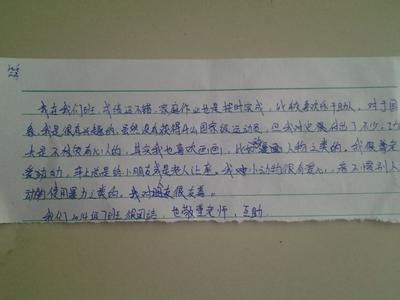 我在我们班，成绩还不错，家庭作业也是按时完成，比较喜欢帮助人，对于围
棋，我是很有兴趣的，虽然没有获得什么国家级运动员，但我对它付出了不少，功
夫是不放没有心人的，其实我也喜欢画画，比如画人物之类的，我很尊
爱幼，车上总是给小朋友或是老人让座。我对小动物很有爱心，看不惯别人
动物使用暴力之类的。我对朋友很友善。
我们班很团结，也敬重老师，互助